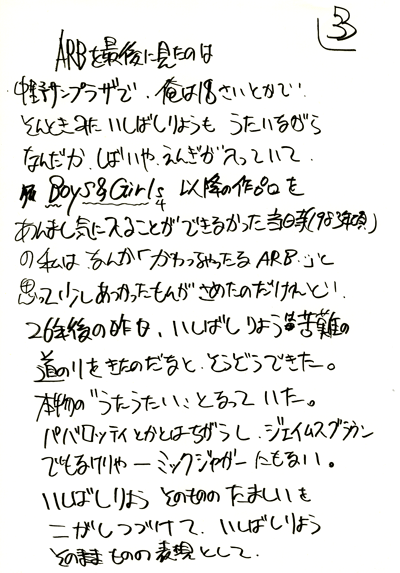 3
ARBを最後に見たのは
中野サンプラザで、俺は18さいとかで
そんときみた いしばしりょうも うたいながら
なんだか、しばいや、えんぎが入っていて、
Boys & Girls 以降の作品を
あんまし気に入ることができなかった当日寺(1983年頃)
の私は なんか「かわっちゃったなARB…」と
思って少しあつかったもんがさめたのだけれど、
26年後の昨日、いしばしりょう 苦難の
道のりをきたのだなと、そうぞうできた。
本物の"うたうたい"となっていた。
パバロッティとかとはちがうし、ジェイムスブラウン
でもなけりゃーミックジャガーにもない。
いしばしりょう そのもの たましいを
こがしつづけて、いしばしりょう
そのままものの表現として、